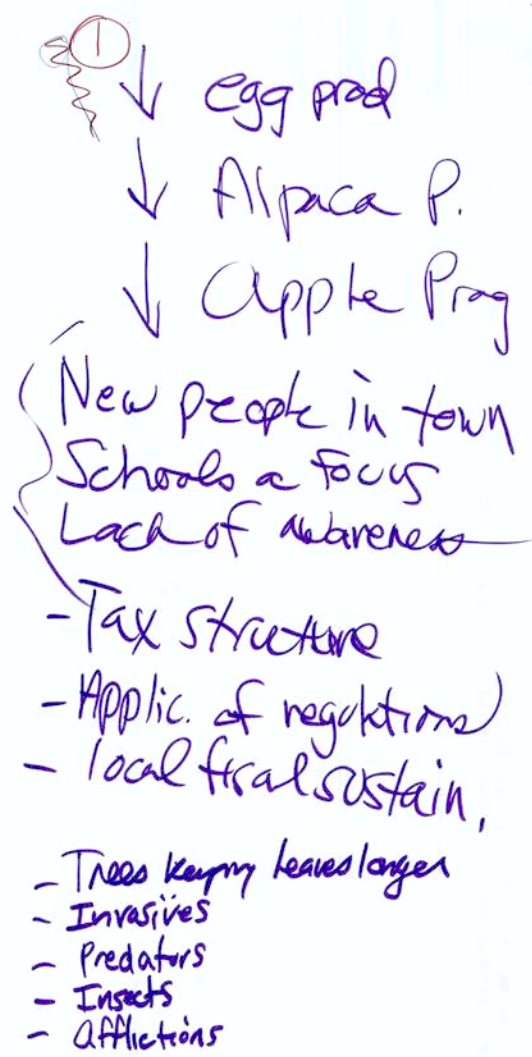 1
↓ egg prod
↓ Alpaca P.
↓ Apple Prog
New people in town
Schools a focus
Lack of awareness
- Tax structure
- Applic. of regulations
- local fiscal sustain.
- Trees keeping leaves longer
- Invasives
- Predators
- Insects
- Afflictions